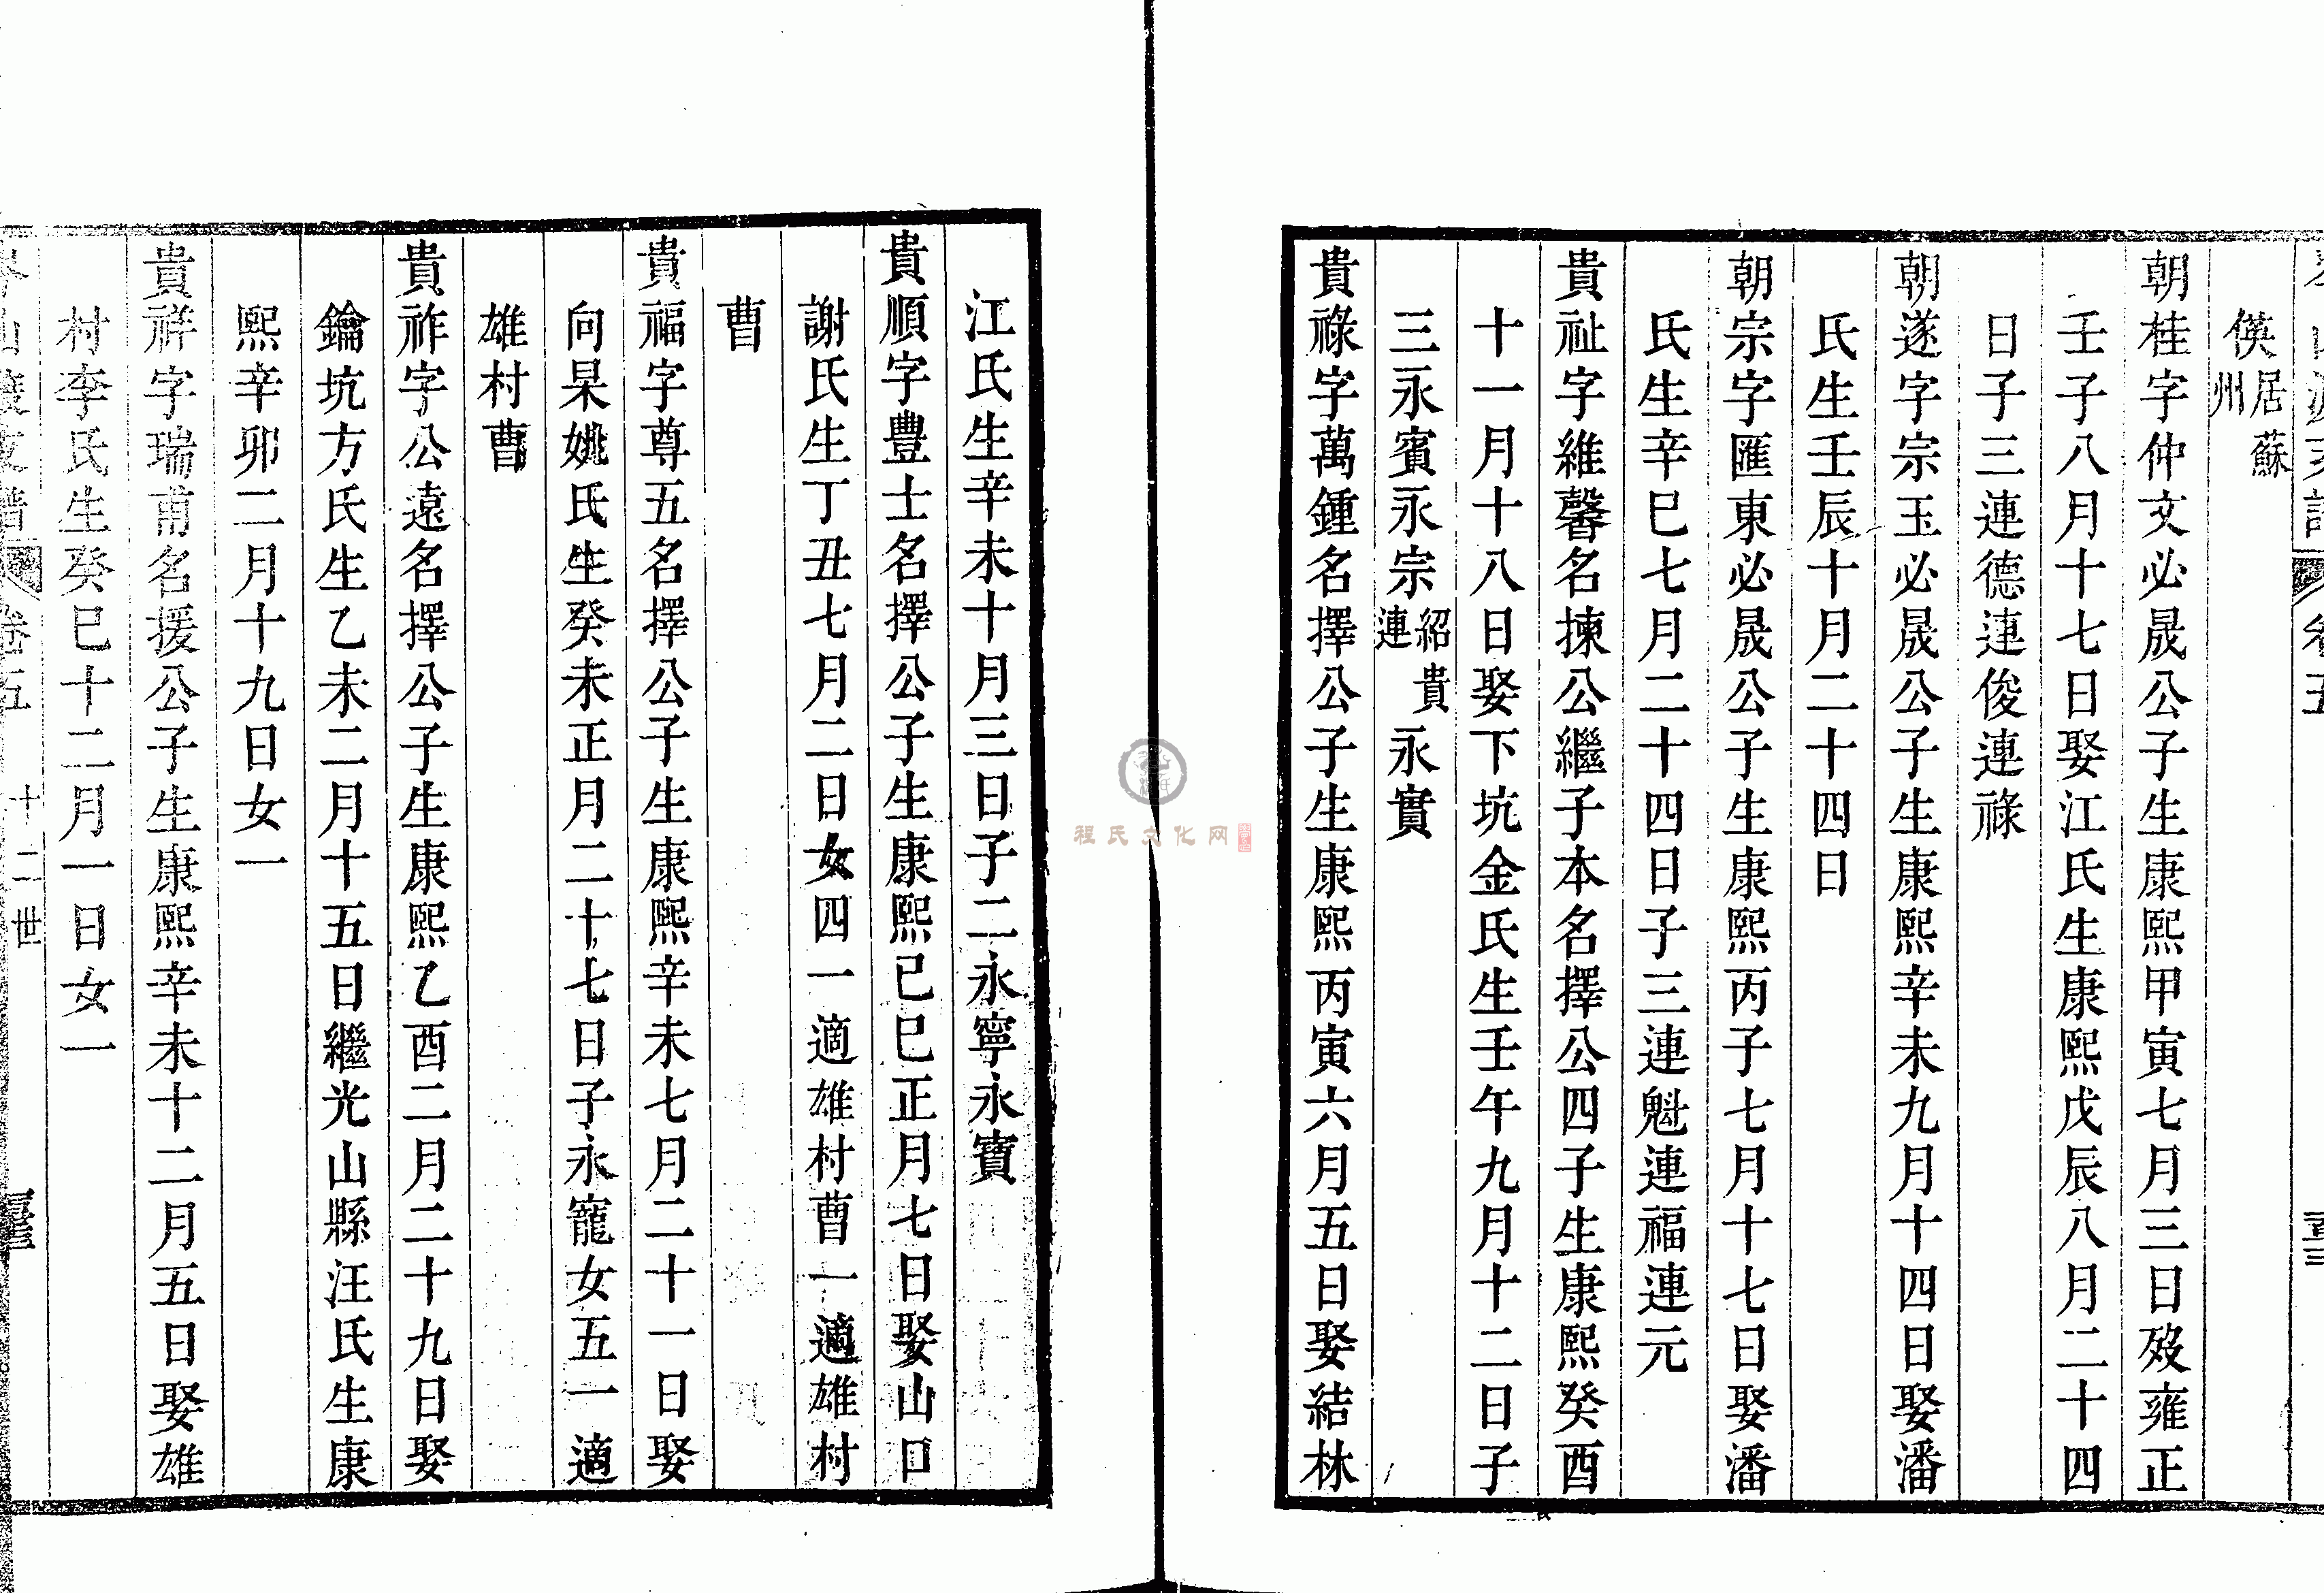 俟居蘇州
朝桂字仲文必晟公子生康熙甲寅七月三日歿雍正
壬子八月十七日娶江氏生康熙戊辰八月二十四
日子三連德連俊連祿
朝遂字宗玉必晟公子生康熙辛未九月十四日娶潘
氏生壬辰十月二十四日
朝宗字匯東必晟公子生康熙丙子七月十七日娶潘
氏生辛巳七月二十四日子三連魁連福連元
貴祉字維馨名揀公繼子本名擇公四子生康熙癸酉
十一月十八日娶下坑金氏生壬午九月十二日子
三永賓永宗紹貴連永實
貴祿字萬鍾名擇公子生康熙丙寅六月五日娶結林
江氏生辛未十月三日子二永寧永寶
貴順字豊士名擇公子生康熙己巳正月七日娶山口
謝氏生丁丑七月二日女四一適雄村曹一適雄村
曹
貴福字尊五名擇公子生康熙辛未七月二十一日娶
向杲姚氏生癸未正月二十七日子永寵女五一適
雄村曹
貴祚字公遠名擇公子生康熙乙酉二月二十九日娶
鑰坑方氏生乙未二月十五日繼光山縣汪氏生康
熙辛卯二月十九日女一
貴祥字瑞甫名援公子生康熙辛未十二月五日娶雄
村李氏生癸巳十二月一日女一
卷五 十二世
程氏文化网